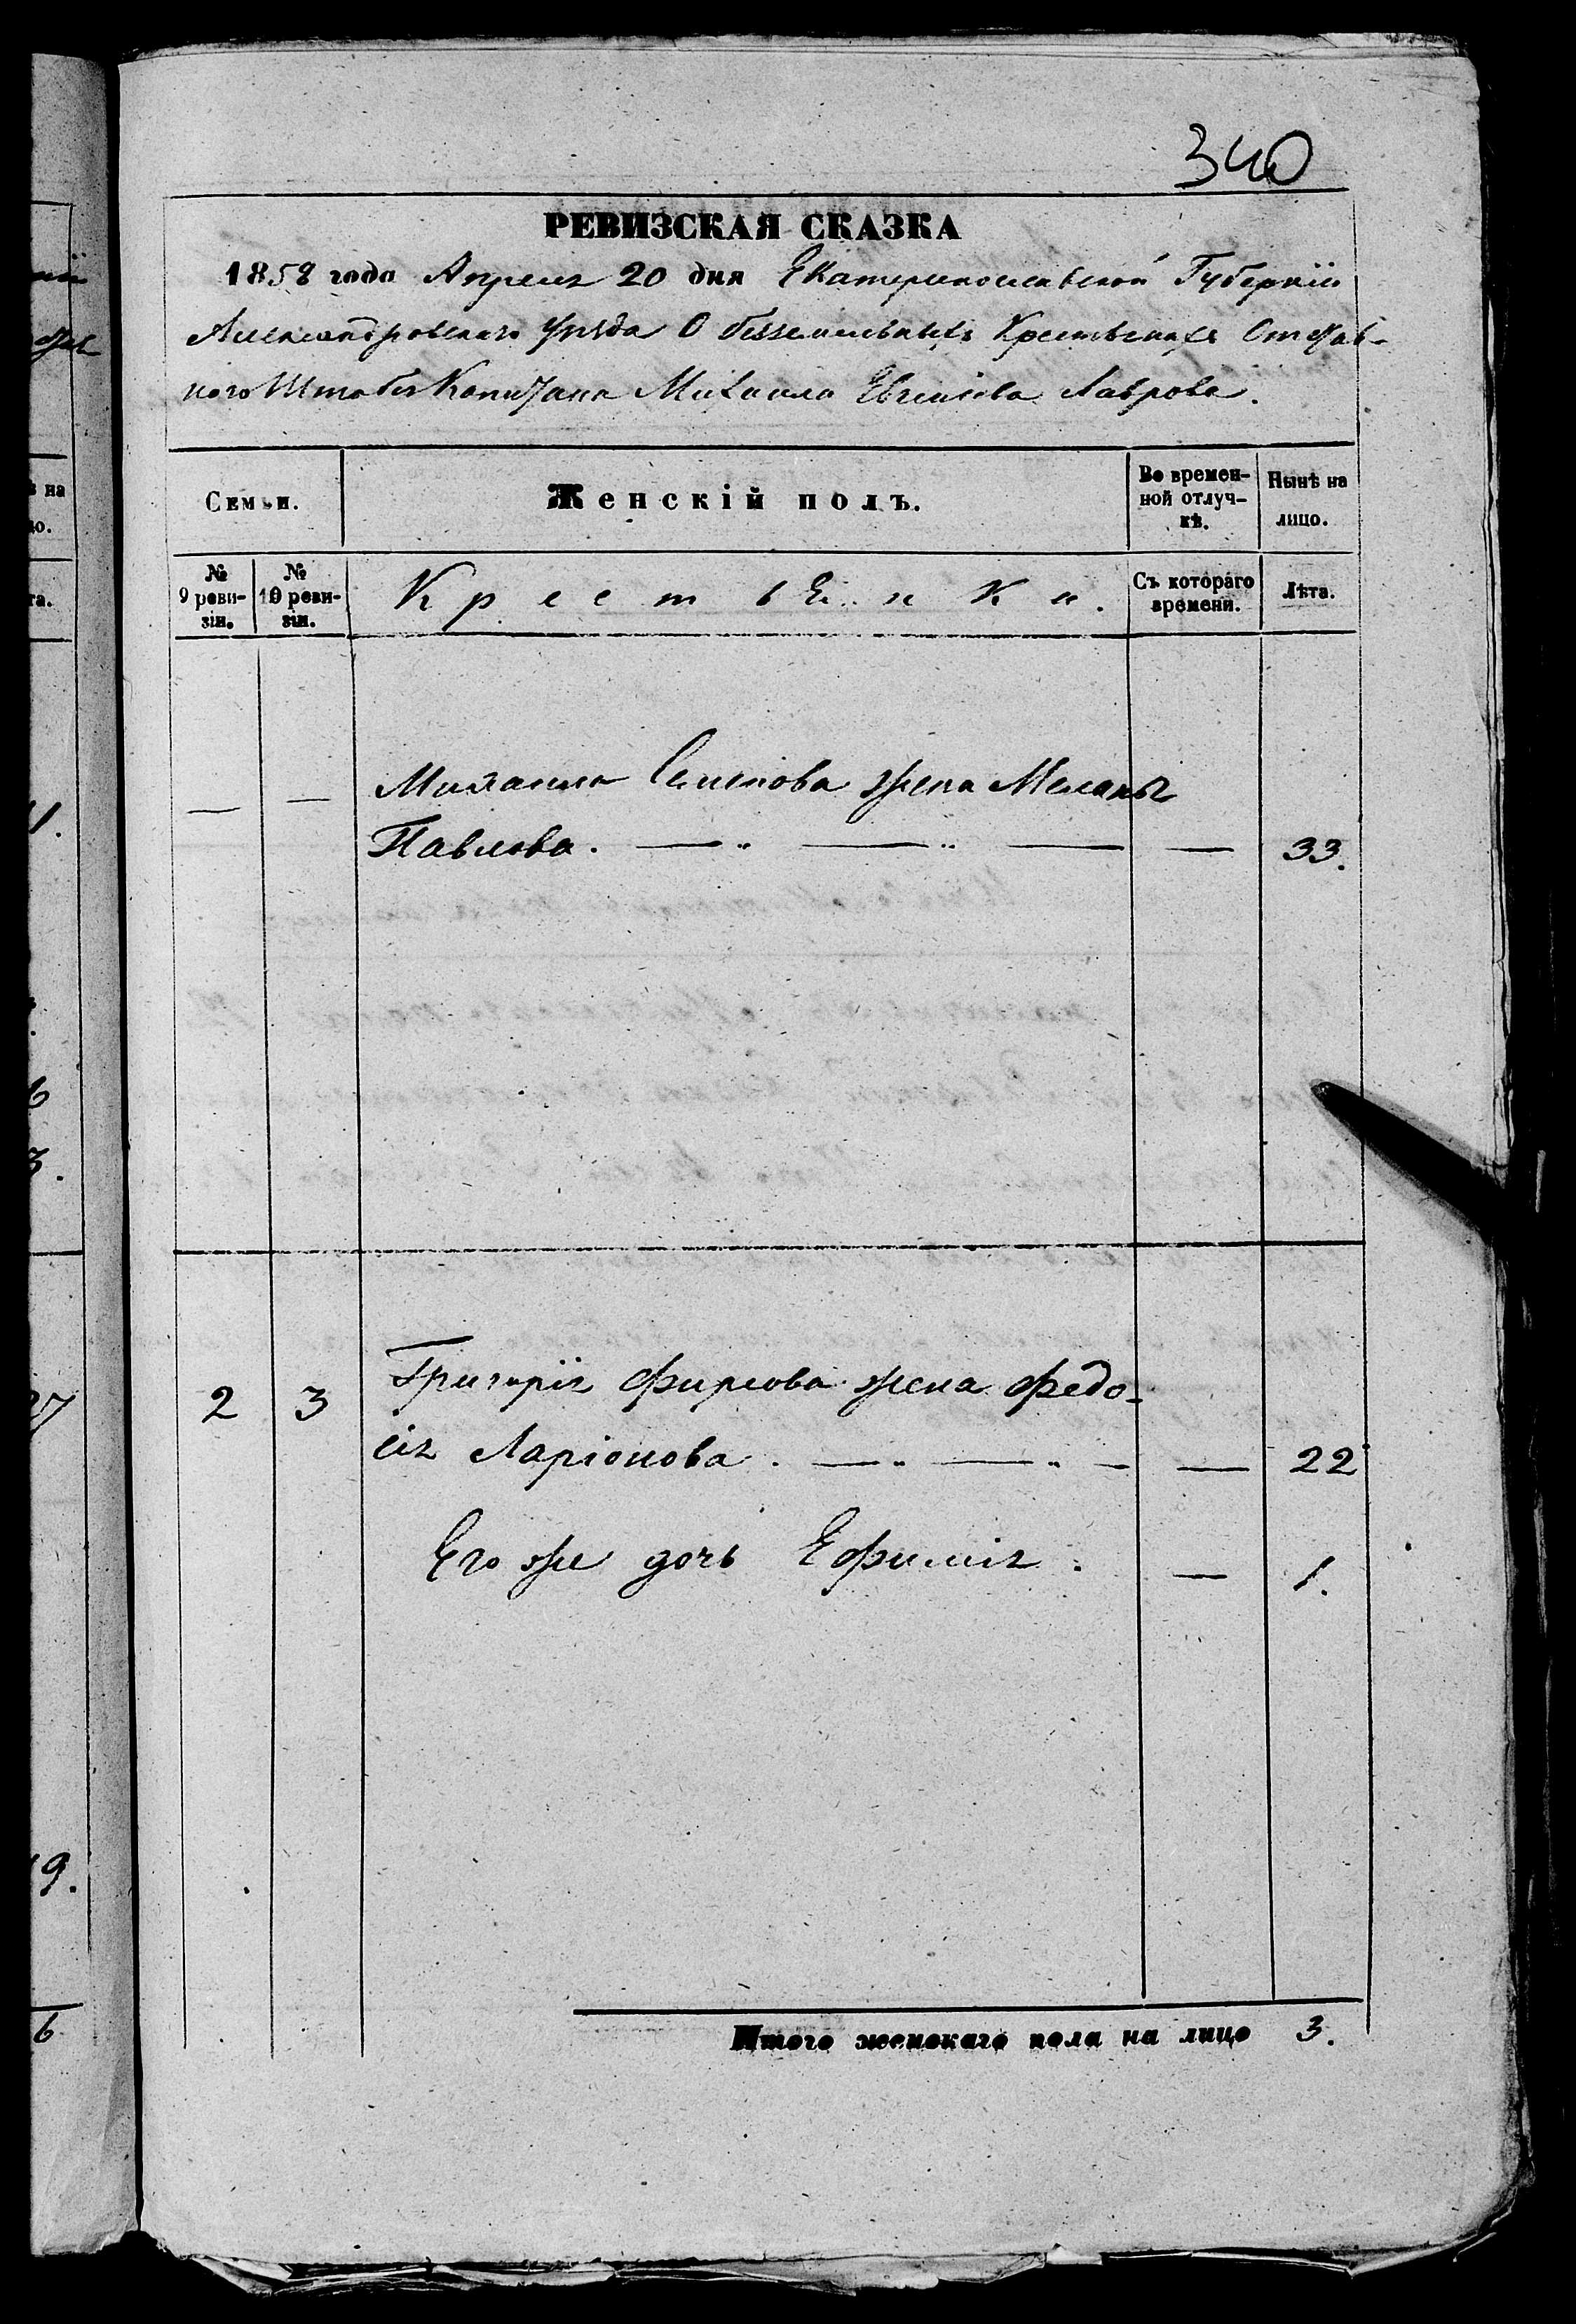 340
РЕВИЗСКАЯ СКАЗКА
1858 года Апреля 20 дня Екатеринославской Губерніи
Александровскаго уѣзда О безземельныхъ Крестьянахъ Отстав-
ного Штабсъ Капитана Михаила Лаврова.
Семьи. Женскій полъ. Во времен-
ной отлуч-
кѣ. Нынѣ на
лицо.
№
9 реви-
зіи. №
10 реви-
зіи. Крестьянки. Съ котораго
времени. Лѣта.
— — Михаила Семенова жена Меланья
Павлова. — „ — „ — — 33.
2 3 Григорія Фирсова жена Федо-
сія Ларіонова. — „ — „ — — 22
Его же дочь Ефимія. — 1.
Итого женскаго пола на лицо 3.